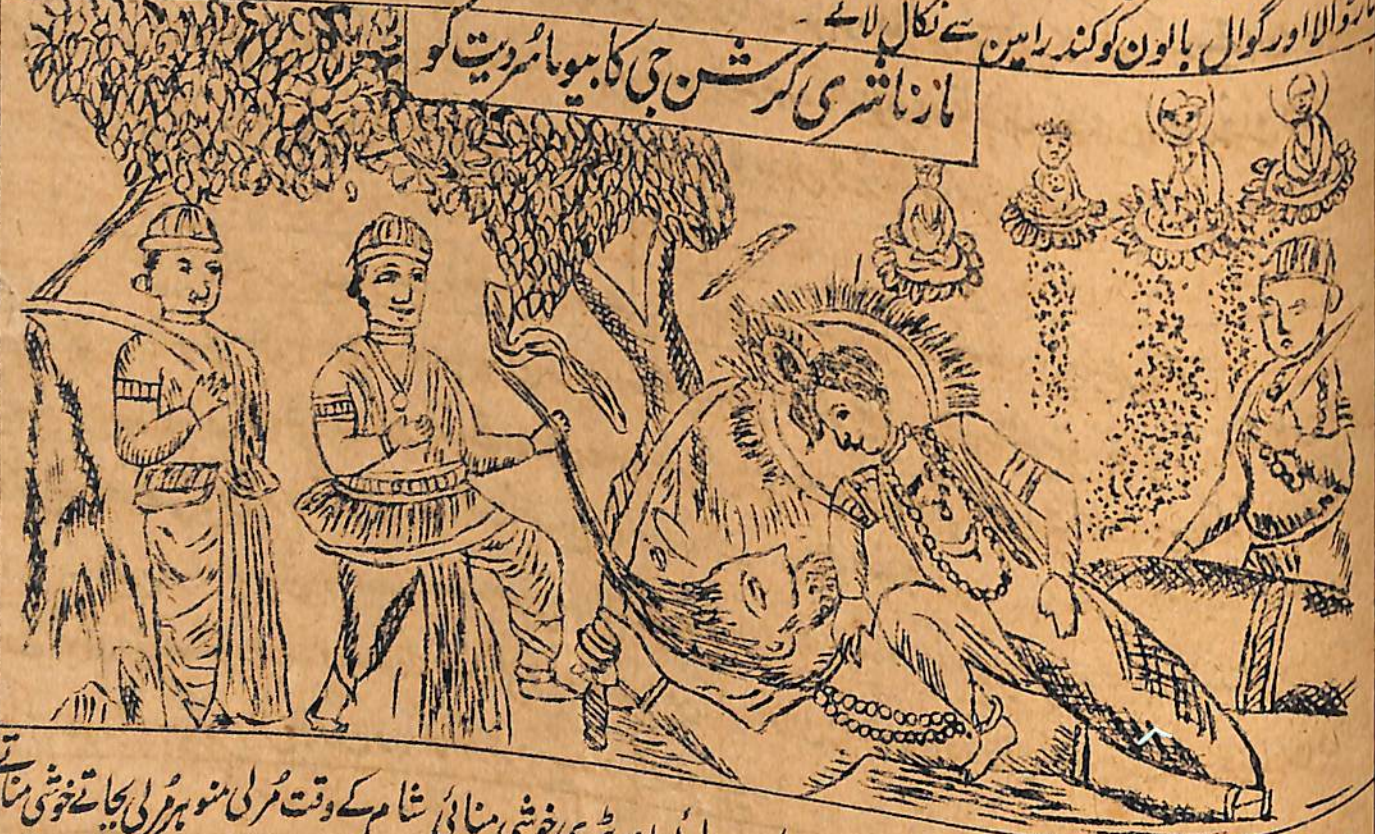 مارڈالا اور گوال بالون کو کندرامین سے نکال لائے ۔
مارنا شری کرشن جی کا بیوماسُر دیت کو
خوشی منائی شام کے وقت مُرلی منوہر مُرلی بجاتے خوشی مناتے